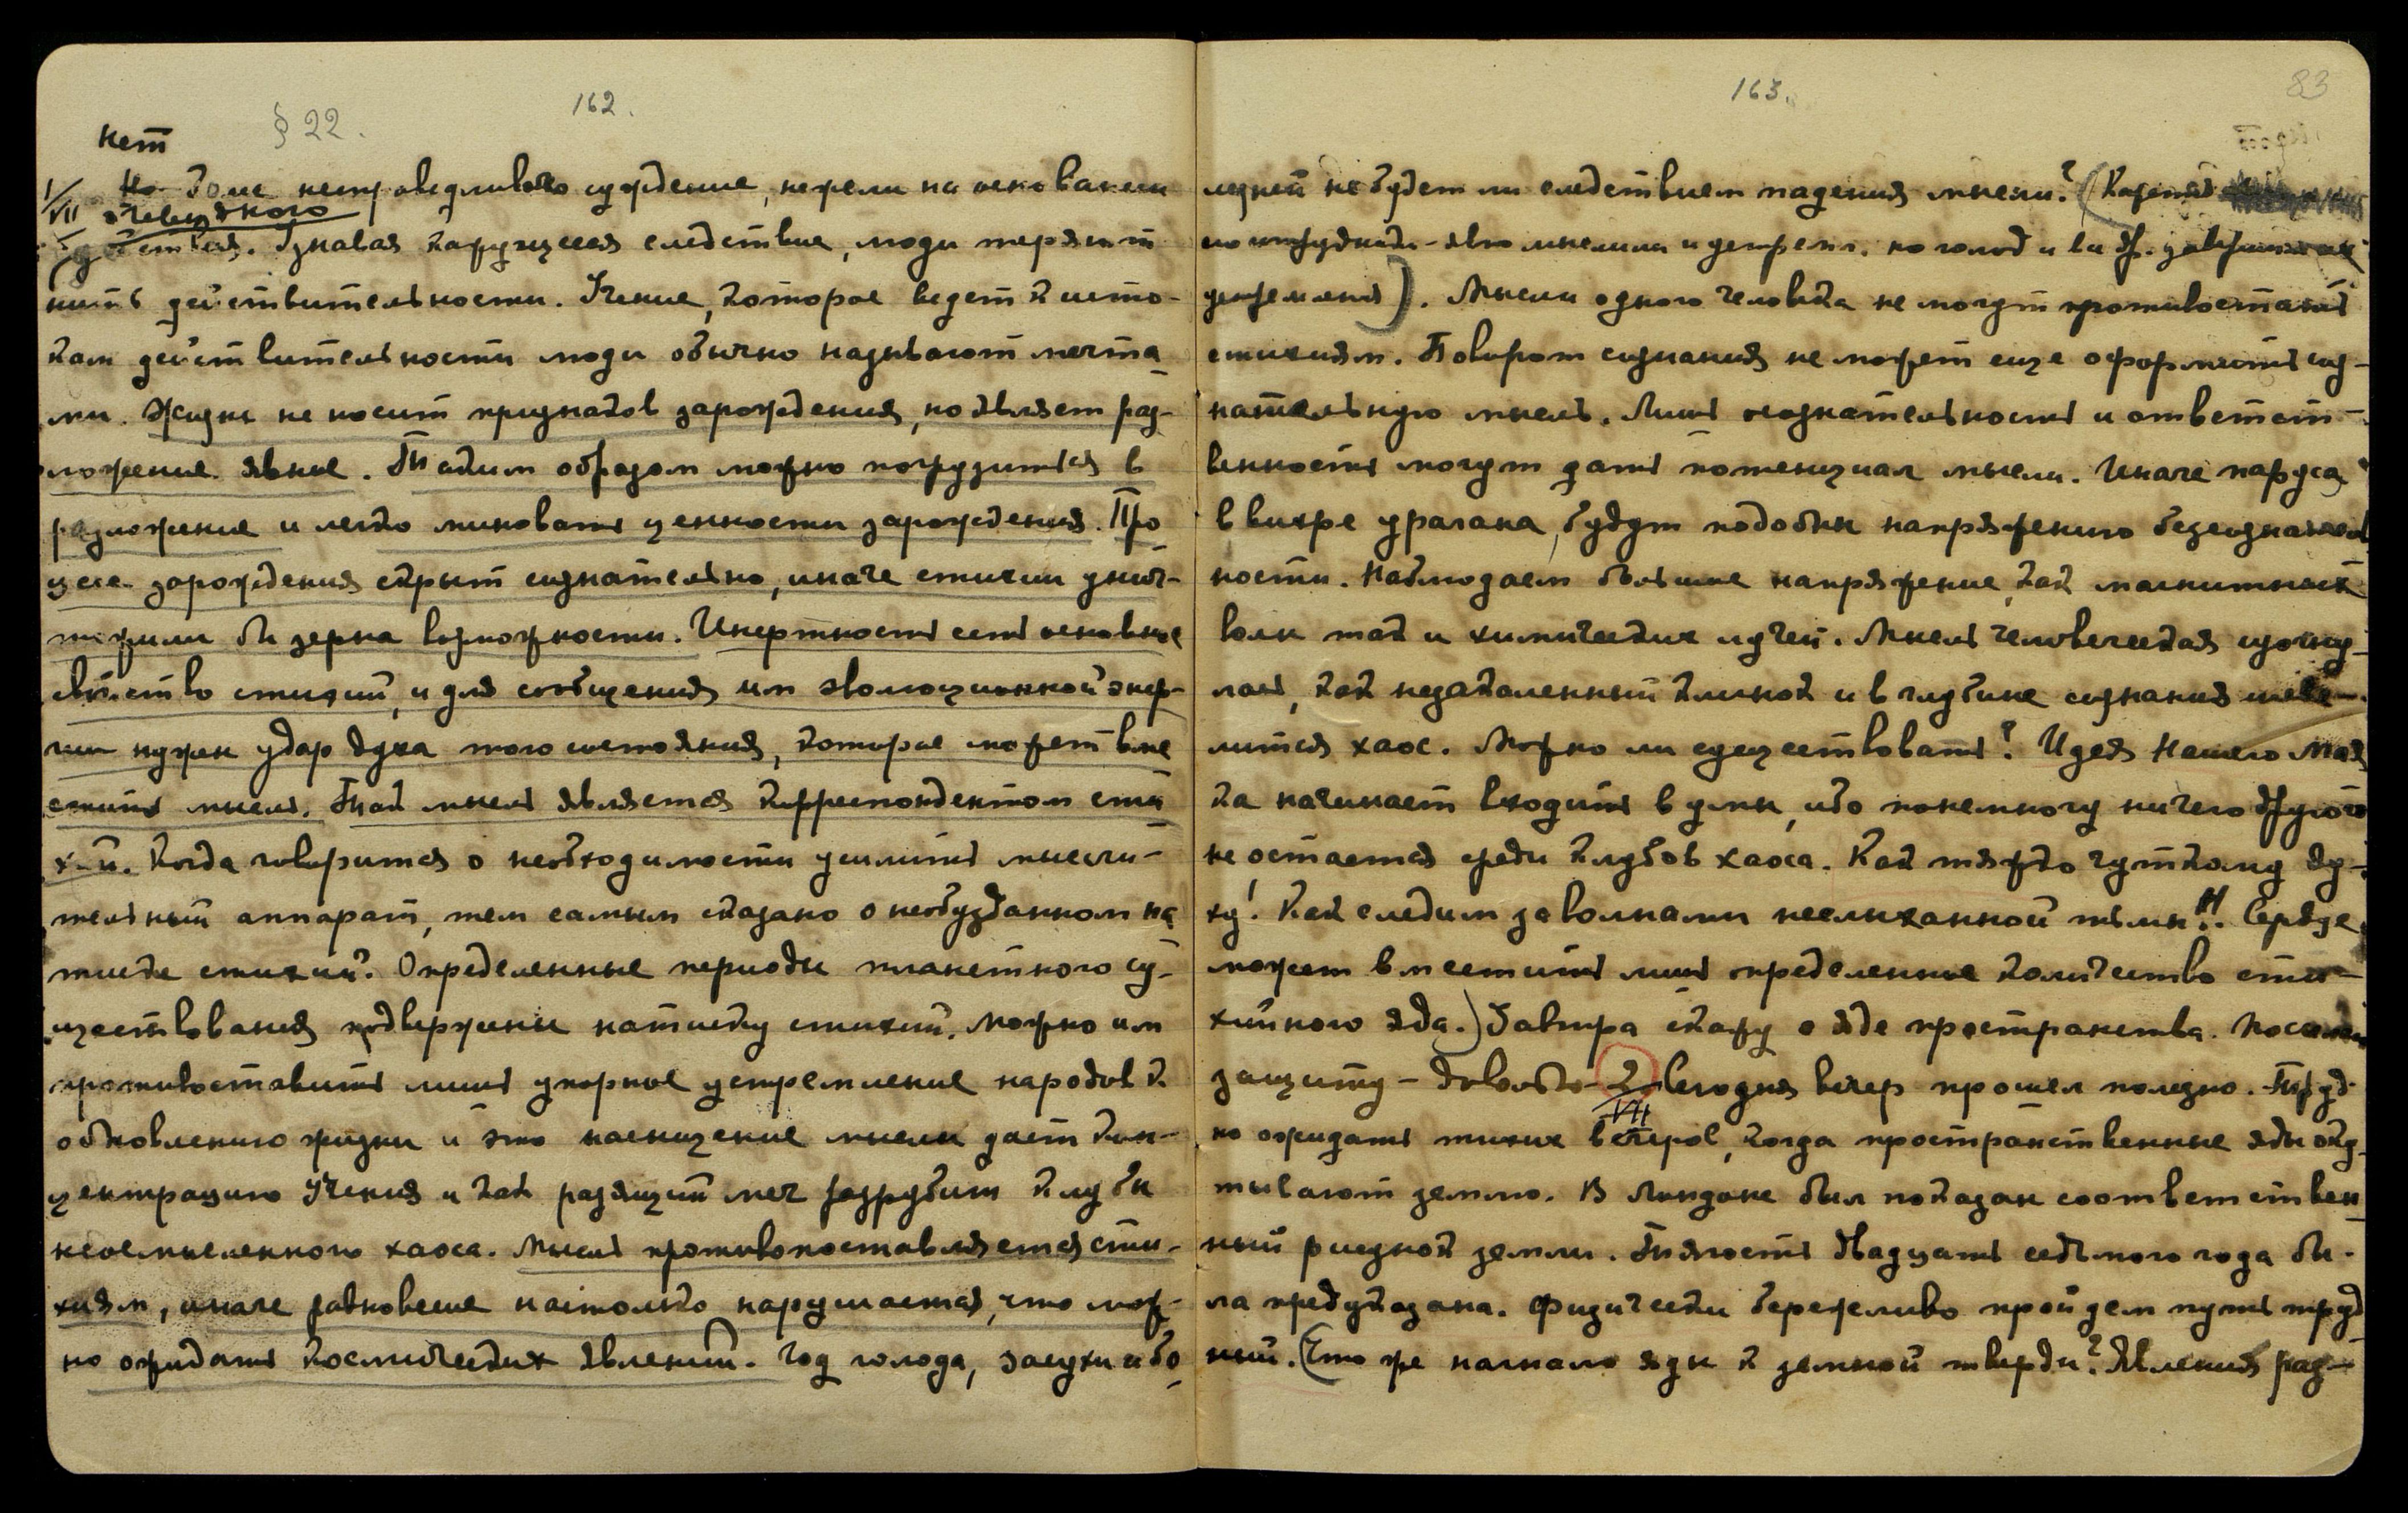 162.
§ 22.
Нет
1/VII Но более несправедливого суждения, нежели на основании
очевидного
действия. Узнавая кажущееся следствие, люди теряют
нить действительности. Учение, которое ведет к исто-
кам действительности люди обычно называют мечта
ми. Жизнь не носит признаков зарождения, но являет раз-
ложение явное. Таким образом можно погрузиться в
разложение и легко миновать ценности зарождения. Про
цесс зарождения скрыт сознательно, иначе стихии унич-
тожили бы зерна возможности. Инертность есть основное
свойство стихий, и для сообщения им эволюционной энер-
гии нужен удар духа того состояния, которое может вме
стить мысль. Так мысль является корреспондентом сти
хий. Когда говорится о необходимости усилить мысли-
тельный аппарат, тем самым сказано о необузданном на
тиске стихий. Определенные периоды планетного су-
ществования подвержены натиску стихий. Можно им
противоставить лишь упорное устремление народов к
обновлению жизни и это насыщение мысли дает кон-
центрацию Учения и как разящий меч разрубит клубы
неосмысленного хаоса. Мысль противопоставляется сти-
хиям, иначе равновесие настолько нарушается, что мож-
но ожидать космических явлений. Год голода, засухи и бо
163.
83
лезней не будет ли следствием падения мысли? (Кажется
но устремл. но голод и
устремления). Мысли одного человека не могут противостоять
стихиям. Поворот сознания не может еще оформить соз-
нательную мысль. Лишь сознательность и ответст-
венность могут дать потенциал мысли. Иначе паруса
в вихре урагана, будут подобны напряжению бессознатель
ности. Наблюдаем большие напряжение, как магнитных
волн так и химических лучей. Мысль человеческая согну-
лась, как незакаленный клинок и в глубине сознания шеве-
лится хаос. Можно ли существовать? Идея Нашего Мая
ка начинает входить в умы, ибо понемногу ничего другого
не остается среди клубов хаоса. Как тяжко чуткому ду-
ху! Как следим за волнами неслыханной тьмы!!. Сердце
может вместить лишь определенное количество сти-
хийного яда.) Завтра скажу о яде пространства. Посылаю
защиту - довольно. 2/VII Сегодня вечер прошел полезно. Труд-
но ожидать тихих вечеров, когда пространственные яды оку
тывают землю. В Лондоне был показан соответствен
ный рисунок земли. Тягость двадцать седьмого года бы-
ла предуказана. Физически бережливо пройдем путь труд
ный. (Что же нагнало яды к земной тверди? Явления раз-